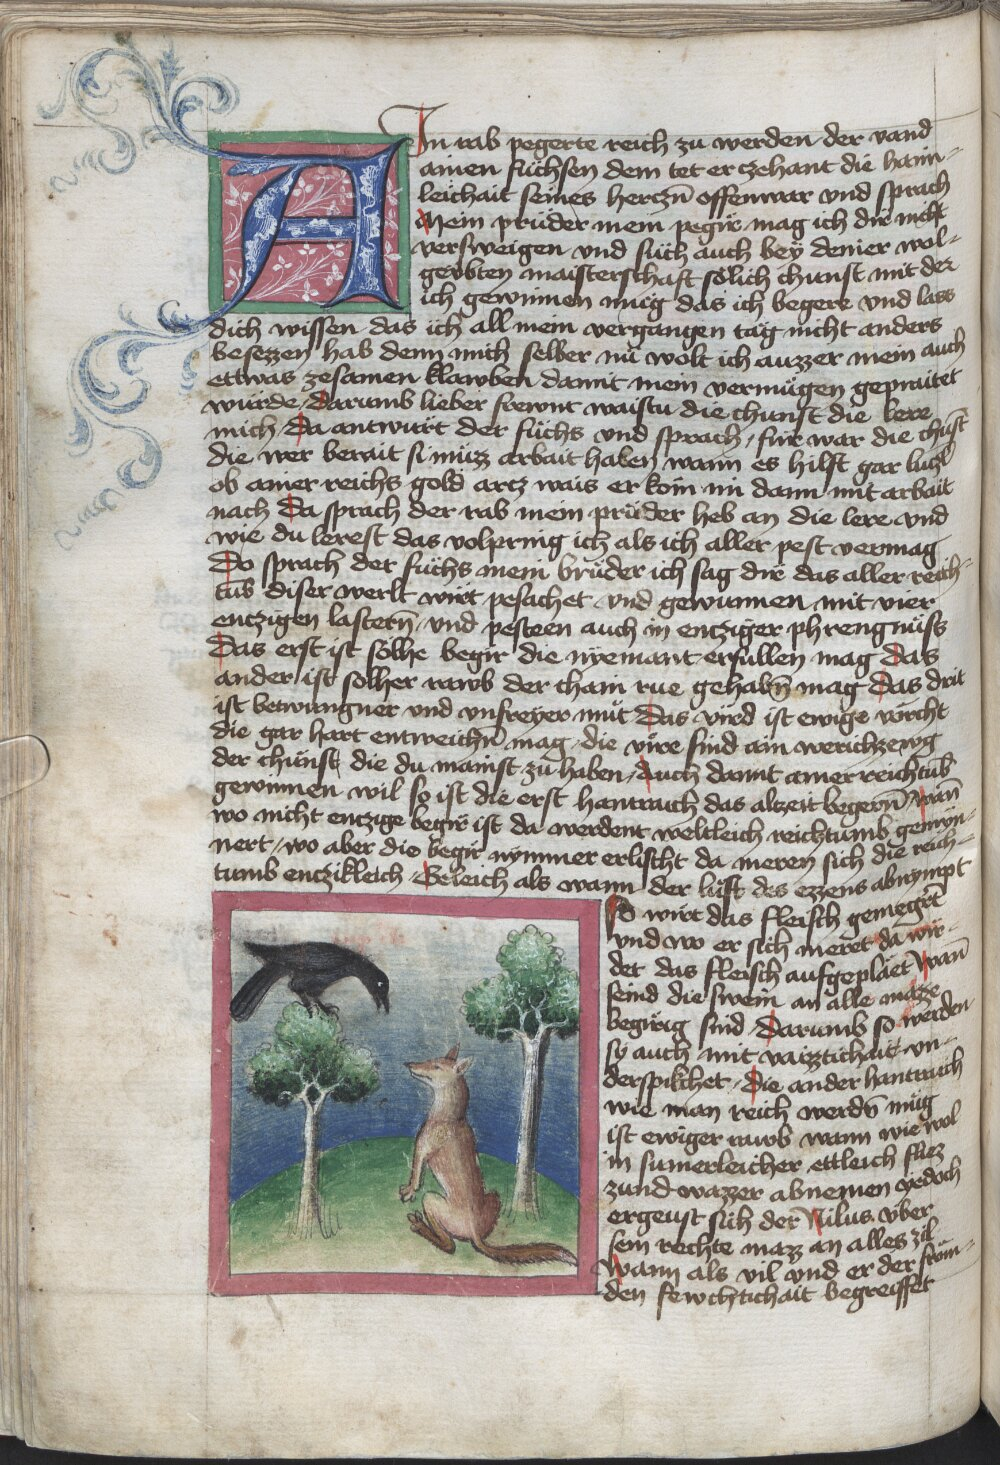 AIn rab pegerte reich zu werden der vand
ainen fuchsen dem tet er czehant die haim-
leichait seines herczn̄ offenwar vnd sprach
Mein prüder mein pegir mag ich dir nicht
versweigen vnd süch auch bey deiner wol-
geübten maisterschaft sölich chunst mit der
ich gewinnen müg das ich begere vnd lass
dich wissen das ich all mein vergangen täg nicht anders
besezzen hab denn mich selber nū wolt ich auzzer mein auch
ettwas zesamen klawben damit mein vermügen gepraitet
würde Darumb lieber frewnt waistu die chunst die lere
mich Da antwurt der füchs vnd sprach fur war die chūst
die wer berait si müzz arbait haben wann es hilft gar lutzl
ob ainer reichs gold arcz wais er kom im dann mit arbait
nach Da sprach der rab mein prüder heb an die lere vnd
wie du lerest das volpring ich als ich aller pest vermag
Do sprach der fuchs mein brüder ich sag dir das aller reich-
tub diser werlt wirt pesachet vnd gewunnen mit vier
enczigen lastern̄ vnd pesteen auch in encziger phrengnüss
Das erst ist sölhe begir die nyemant erfullen mag Das
ander ist solher rawb der chain rue gehabn̄ mag Das drit
ist betwungner vnd vnfreyer müt Das vird ist ewige vorcht
die gar hart entweichn̄ mag die vire sind ain werichzewg
der chünst die du mainst zu haben Auch damit ainer reichtūb
gewinnen wil so ist die erst hantraich das alzeit begern̄ wan̄
wo nicht enczige begir ist da werdent weltleich reichtumb gemyn-
nert wo aber die begir nymmer erlischt da meren sich die reich-
tumb enczikleich Geleich als wann der lust des ezzens abnympt
so wirt das fleisch gemegrt
vnd wo er sich meret da wir-
det das fleisch aufgeplaet wan̄
seind die swein an alle mazze
begirig sind Darumb so werden
sy auch mit vaizztichait vn-
derspikchet Die ander hantraich
wie man reich werdn̄ müg
ist ewiger rawb wann wie wol
in sumerleicher ettleich fliez
zund wazzer abnemen yedoch
ergeust sich der Nilus vber
sein rechte mazz an alles zil
Wann als vil vnd er der ström-
den fewchtichait begreiffet